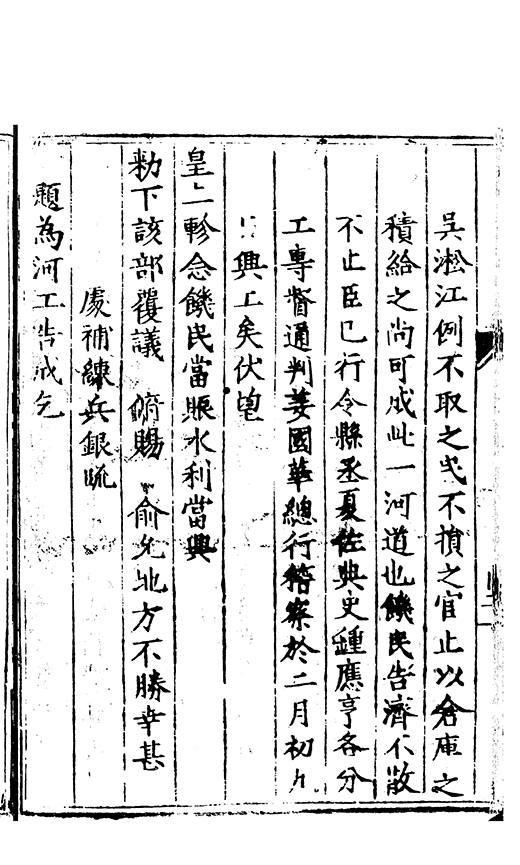 吳淞江例不取之民不損之官止以倉庫之
積給之尚可成此一河道也饑民告濟不散
不止臣已行令縣丞夏佐典史鍾應亨各分
工專督通判姜國華總行稽察於二月初九
日興工矣伏望
皇上軫念饑民當賑水利當興
勑下該部覆議俯賜俞允地方不勝幸甚
處補練兵銀疏
題為河工告成乞